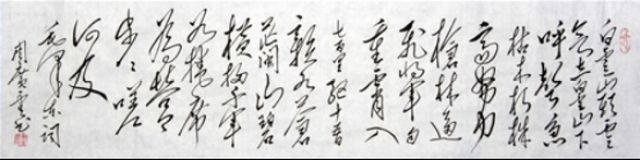 白云山头云
欲立白云山下
呼声急
枯木朽株
齐努力
枪林逼
飞将军自
重霄入
七百里驱十五日
赣水苍
茫闽山碧
横扫千军
如捲席
为营
步步嗟
何及
毛泽东词